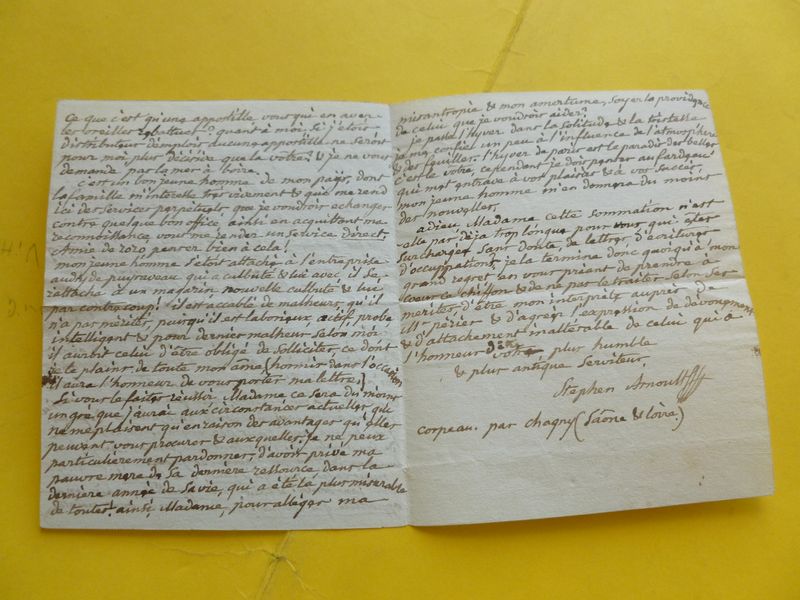 Ce que c'est qu'une appostille, vous qui en avez
les oreilles rebattues? quant à moi, si j'etois
distributeur d'emplois, aucune appostille ne seroit
pour moi plus décisive que la votre. & je ne vous
demande pas la mer à boire.
c'est un bon jeune homme de mon païs, dont
la famille m'interesse très vivement & qui me rend
ici des services perpetuels que je voudrois echanger
contre quelque bon office, ainsi en acquittant ma
reconnoissance vous me rendez un service direct,
Amie de zozo pensez bien à cela!
mon jeune homme s'etoit attaché à l'entreprise
qui a culbuté & lui avec, il se
rattache à un magazin, nouvelle culbute & lui
par contrecoup! il est accablé de malheurs, qu'il
n'a pas mérités, puisqu'il est laborieux, actif, probe
intelligent & pour dernier malheur selon moi
il auroit celui d'être obligé de solliciter, ce dont
je le plains de toute mon ame (hormis dans l'occasion
il aura l'honneur de vous porter ma lettre.)
Si vous le faites réussir Madame ce sera du moins
un gré que j'aurai aux circonstances actuelles, qui
ne me plaisent qu'en raison des avantages qu'elles
peuvent vous procurer & auxquelles je ne peux
particulièrement pardonner, d'avoir privé ma
pauvre mere de sa derniere ressource dans la
derniere année de sa vie, qui a été la plus misérable
de toutes! ainsi, Madame, pour alléger ma
misantropie & mon amertume, soyez la providence
de celui que je voudrois aider?
je passe l'hyver dans la solitude & la tristesse
je me confie un peu à l'influence de l'atmosphère
& des l'hyver de paris est le paradis des belles
c'est le votre, cependant je dois penser au fardeau
qui met entrave à vos plaisirs & à vos succès.
mon jeune homme m'en donnera du moins
des nouvelles.
adieu, Madame cette sommation n'est
elle pas déja trop longue pour vous, qui êtes
surchargée, sans doute, de lettres, d'ecritures
d'occupations, je la termine donc quoiqu'à mon
grand regret en vous priant de prendre à
coeur le chiffon & de ne pas le traiter selon ses
mérites, d'être mon interprète auprès de
Mr perier & d'agréer l'expression de dévouement
& d'attachement inalterable de celui qui a
l'honneur d'être plus humble
& plus antique serviteur.
Stephen Arnoult
corpeau. par chagny (Saône & loire)